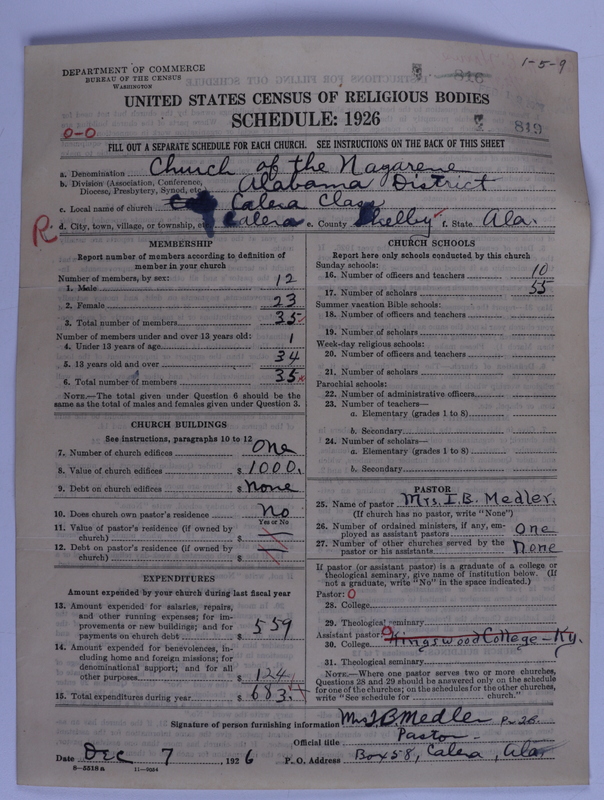 1-5-9
DEPARTMENT OF COMMERCE
BUREAU OF THE CENSUS
WASHINGTON
816
UNITED STATES CENSUS OF RELIGIOUS BODIES
SCHEDULE: 1926
819
0-0
FILL OUT A SEPARATE SCHEDULE FOR EACH CHURCH. SEE INSTRUCTIONS ON THE BACK OF THIS SHEET
a. Denomination Church of the Nazarene
b. Division (Association, Conference, Diocese, Presbytery, Synod, etc.) Alabama District
c. Local name of church Calera Class
R d. City, town, village, or township, etc. Calera e. County Shelby f. State Ala.
MEMBERSHIP
Report number of members according to definition of
member in your church
Number of members, by sex:
1. Male 12
2. Female 23
3. Total number of members 35
Number of members under and over 13 years old:
4. Under 13 years of age 1
5. 13 years old and over 34
6. Total number of members 35
NOTE.—The total given under Question 6 should be
same as the total of males and females given under Question 3.
CHURCH BUILDINGS
See instructions, paragraphs 10 to 12
7. Number of church edifices One
8. Value of church edifices $ 1000.
9. Debt on church edifices $ None
10. Does church own pastor's residence? No
Yes or No
11. Value of pastor's residence (if owned by
church) $
12. Debt on pastor's residence (if owned by
church) $
EXPENDITURES
Amount expended by church during last fiscal year
13. Amount expended for salaries, repairs,
and other running expenses; for im-
provements or new buildings; and for
payments on church debt $ 559
14. Amount expended for benevolences, in-
cluding home and foreign missions; for
denominational support; and for all
other purposes $ 124
15. Total expenditures during year $ 683.
CHURCH SCHOOLS
Report here only schools conducted by this church
Sunday schools:
16. Number of officers and teachers 10
17. Number of scholars 55
Summer vacation Bible schools:
18. Number of officers and teachers
19. Number of scholars
Week-day religious schools:
20. Number of officers and teachers
21. Number of scholars
Parochial schools:
22. Number of administrative officers
23. Number of teachers—
a. Elementary (grades 1 to 8)
b. Secondary
24. Number of scholars—
a. Elementary (grades 1 to 8)
b. Secondary
PASTOR
25. Name of pastor Mrs. I. B. Medler.
(If church has no pastor, write "None")
26. Number of ordained ministers, if any, em-
ployed as assistant pastors One
27. Number of other churches served by the
pastor or his assistants None
If pastor (or assistant pastor) is a graduate of a college or
theological seminary, give name of institution below. (If
not a graduate, write "No" in the space indicated.)
Pastor: 0
28. College
29. Theological seminary
Assistant pastor: 0
30. College Kingswood College - Ky.
31. Theological seminary
NOTE.—Where one pastor serves two or more churches,
Questions 28 and 29 should be answered only on the schedule
for one of the churches; on the schedules for the other churches,
write "See schedule for church."
Signature of person furnishing information Mrs I. B. Medler
Official title Pastor
Date Dec 7, 1926 P. O. Address Box 58, Calera, Ala.
8-5518 a 11-9034